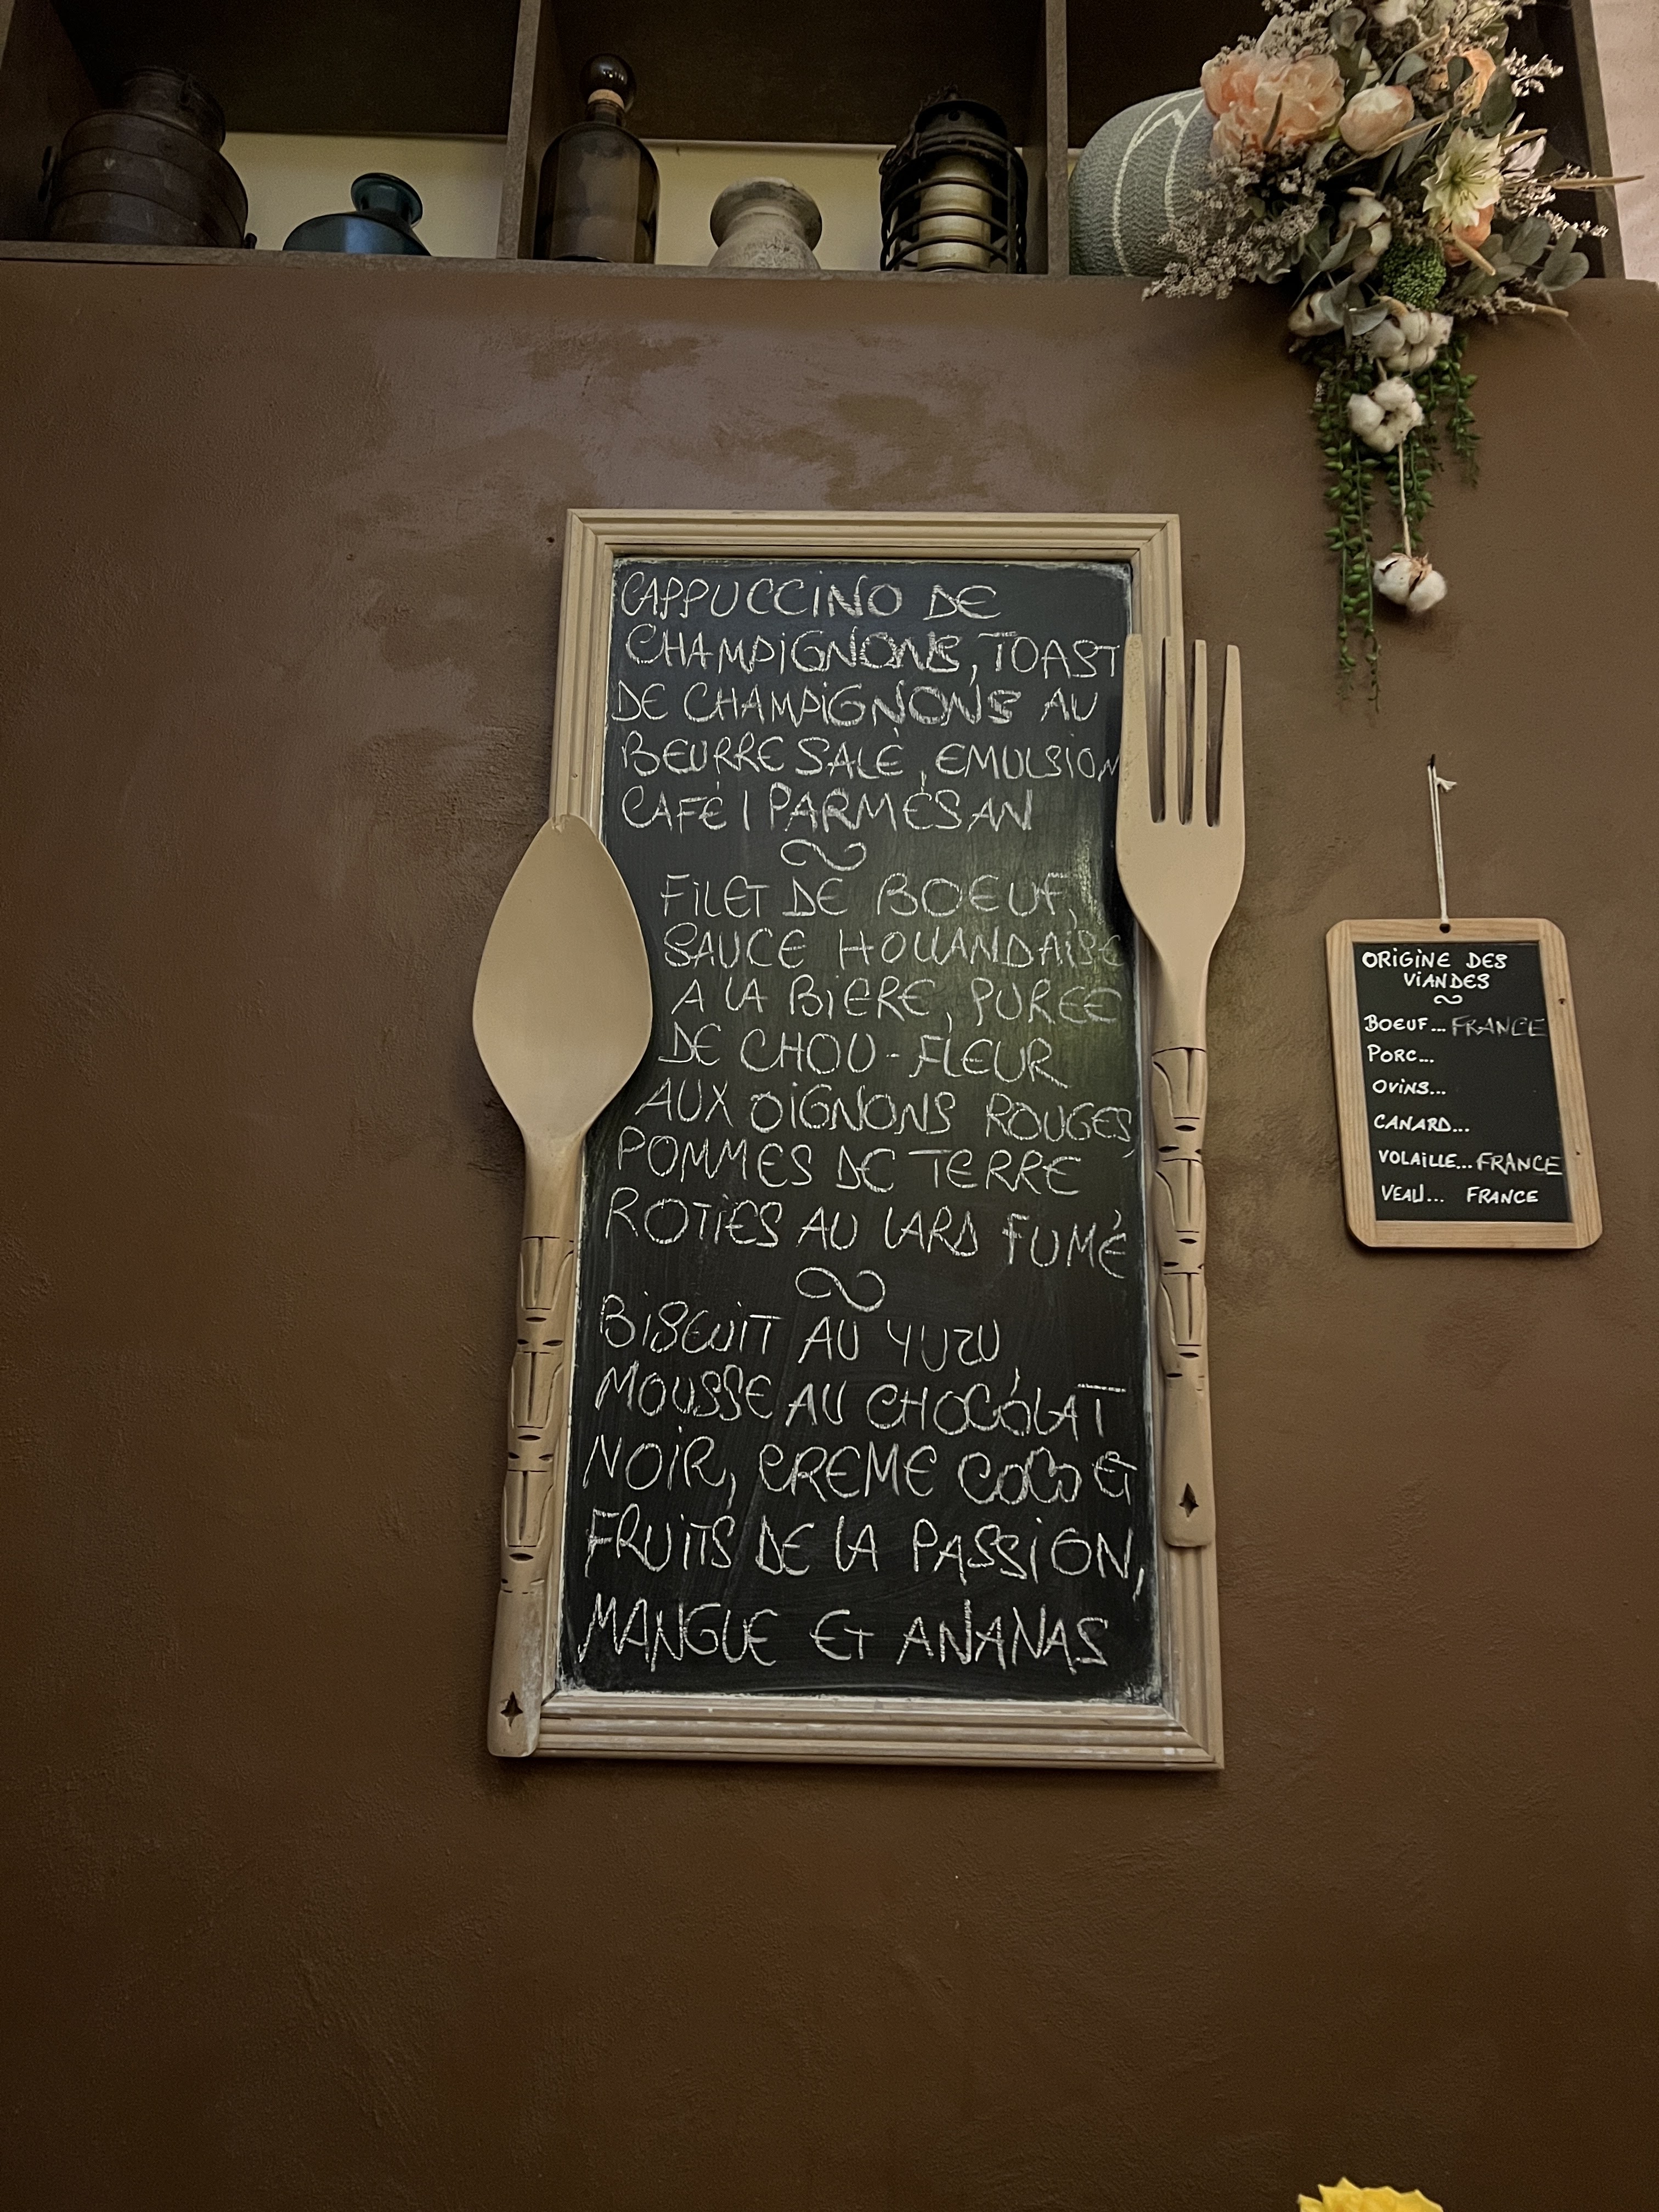 CAPPUCCINO DE
CHAMPIGNONS, TOAST
DE CHAMPIGNONS AU
BEURRE SALÉ, EMULSION
CAFÉ / PARMÉSAN
FILET DE BOEUF,
SAUCE HOLLANDAISE
A LA BIERE, PUREE
DE CHOU-FLEUR
AUX OIGNONS ROUGES,
POMMES DE TERRE
ROTIES AU LARD FUMÉ
BISCUIT AU YUZU,
MOUSSE AU CHOCOLAT
NOIR, CREME COCO ET
FRUITS DE LA PASSION,
MANGUE ET ANANAS
ORIGINE DES
VIANDES
BOEUF... FRANCE
PORC...
OVINS...
CANARD...
VOLAILLE... FRANCE
VEAU... FRANCE